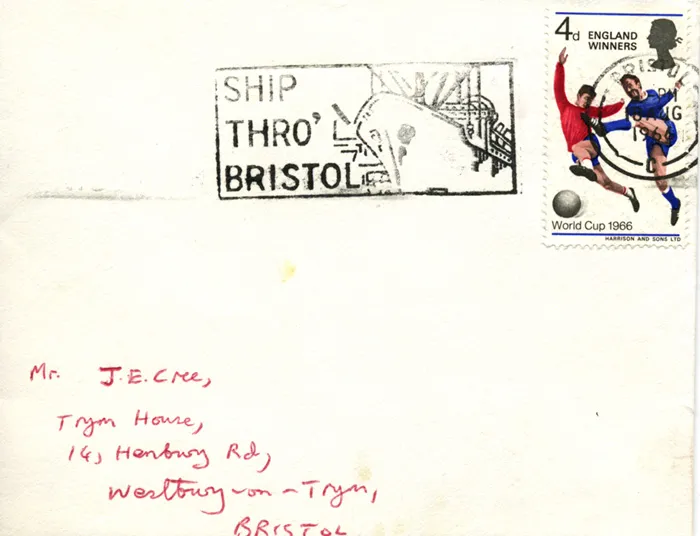 SHIP
THRO'
BRISTOL
4d ENGLAND
WINNERS
BRISTOL
AUG
1966
World Cup 1966
HARRISON AND SONS LTD
Mr. J.E. Cree,
Trym House,
14, Henbury Rd,
Westbury-on-Trym,
BRISTOL